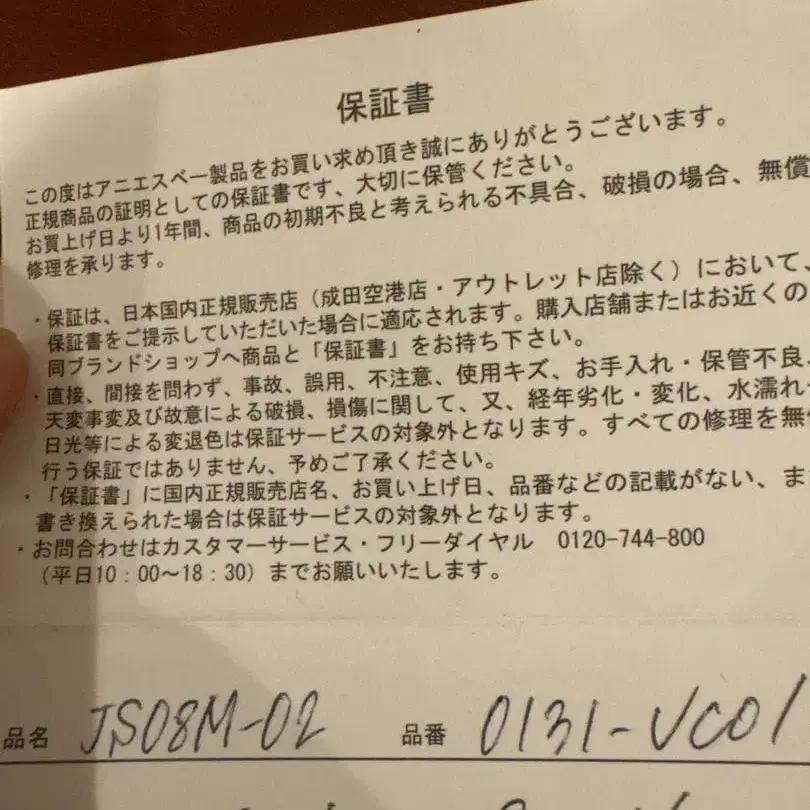 保証書
この度はアニエスベー製品をお買い求め頂き誠にありがとうございます。
正規商品の証明としての保証書です、大切に保管ください。
お買上げ日より1年間、商品の初期不良と考えられる不具合、破損の場合、無償
修理を承ります。
・保証は、日本国内正規販売店（成田空港店・アウトレット店除く）において、
保証書をご提示していただいた場合に適応されます。購入店舗またはお近くの
同ブランドショップへ商品と「保証書」をお持ち下さい。
・直接、間接を問わず、事故、誤用、不注意、使用キズ、お手入れ・保管不良、
天変事変及び故意による破損、損傷に関して、又、経年劣化・変化、水濡れ
日光等による変退色は保証サービスの対象外となります。すべての修理を無
行う保証ではありません、予めご了承ください。
・「保証書」に国内正規販売店名、お買い上げ日、品番などの記載がない、ま
書き換えられた場合は保証サービスの対象外となります。
・お問合わせはカスタマーサービス・フリーダイヤル 0120-744-800
（平日10：00～18：30）までお願いいたします。
品名 JS08M-02 品番 0131-VC01